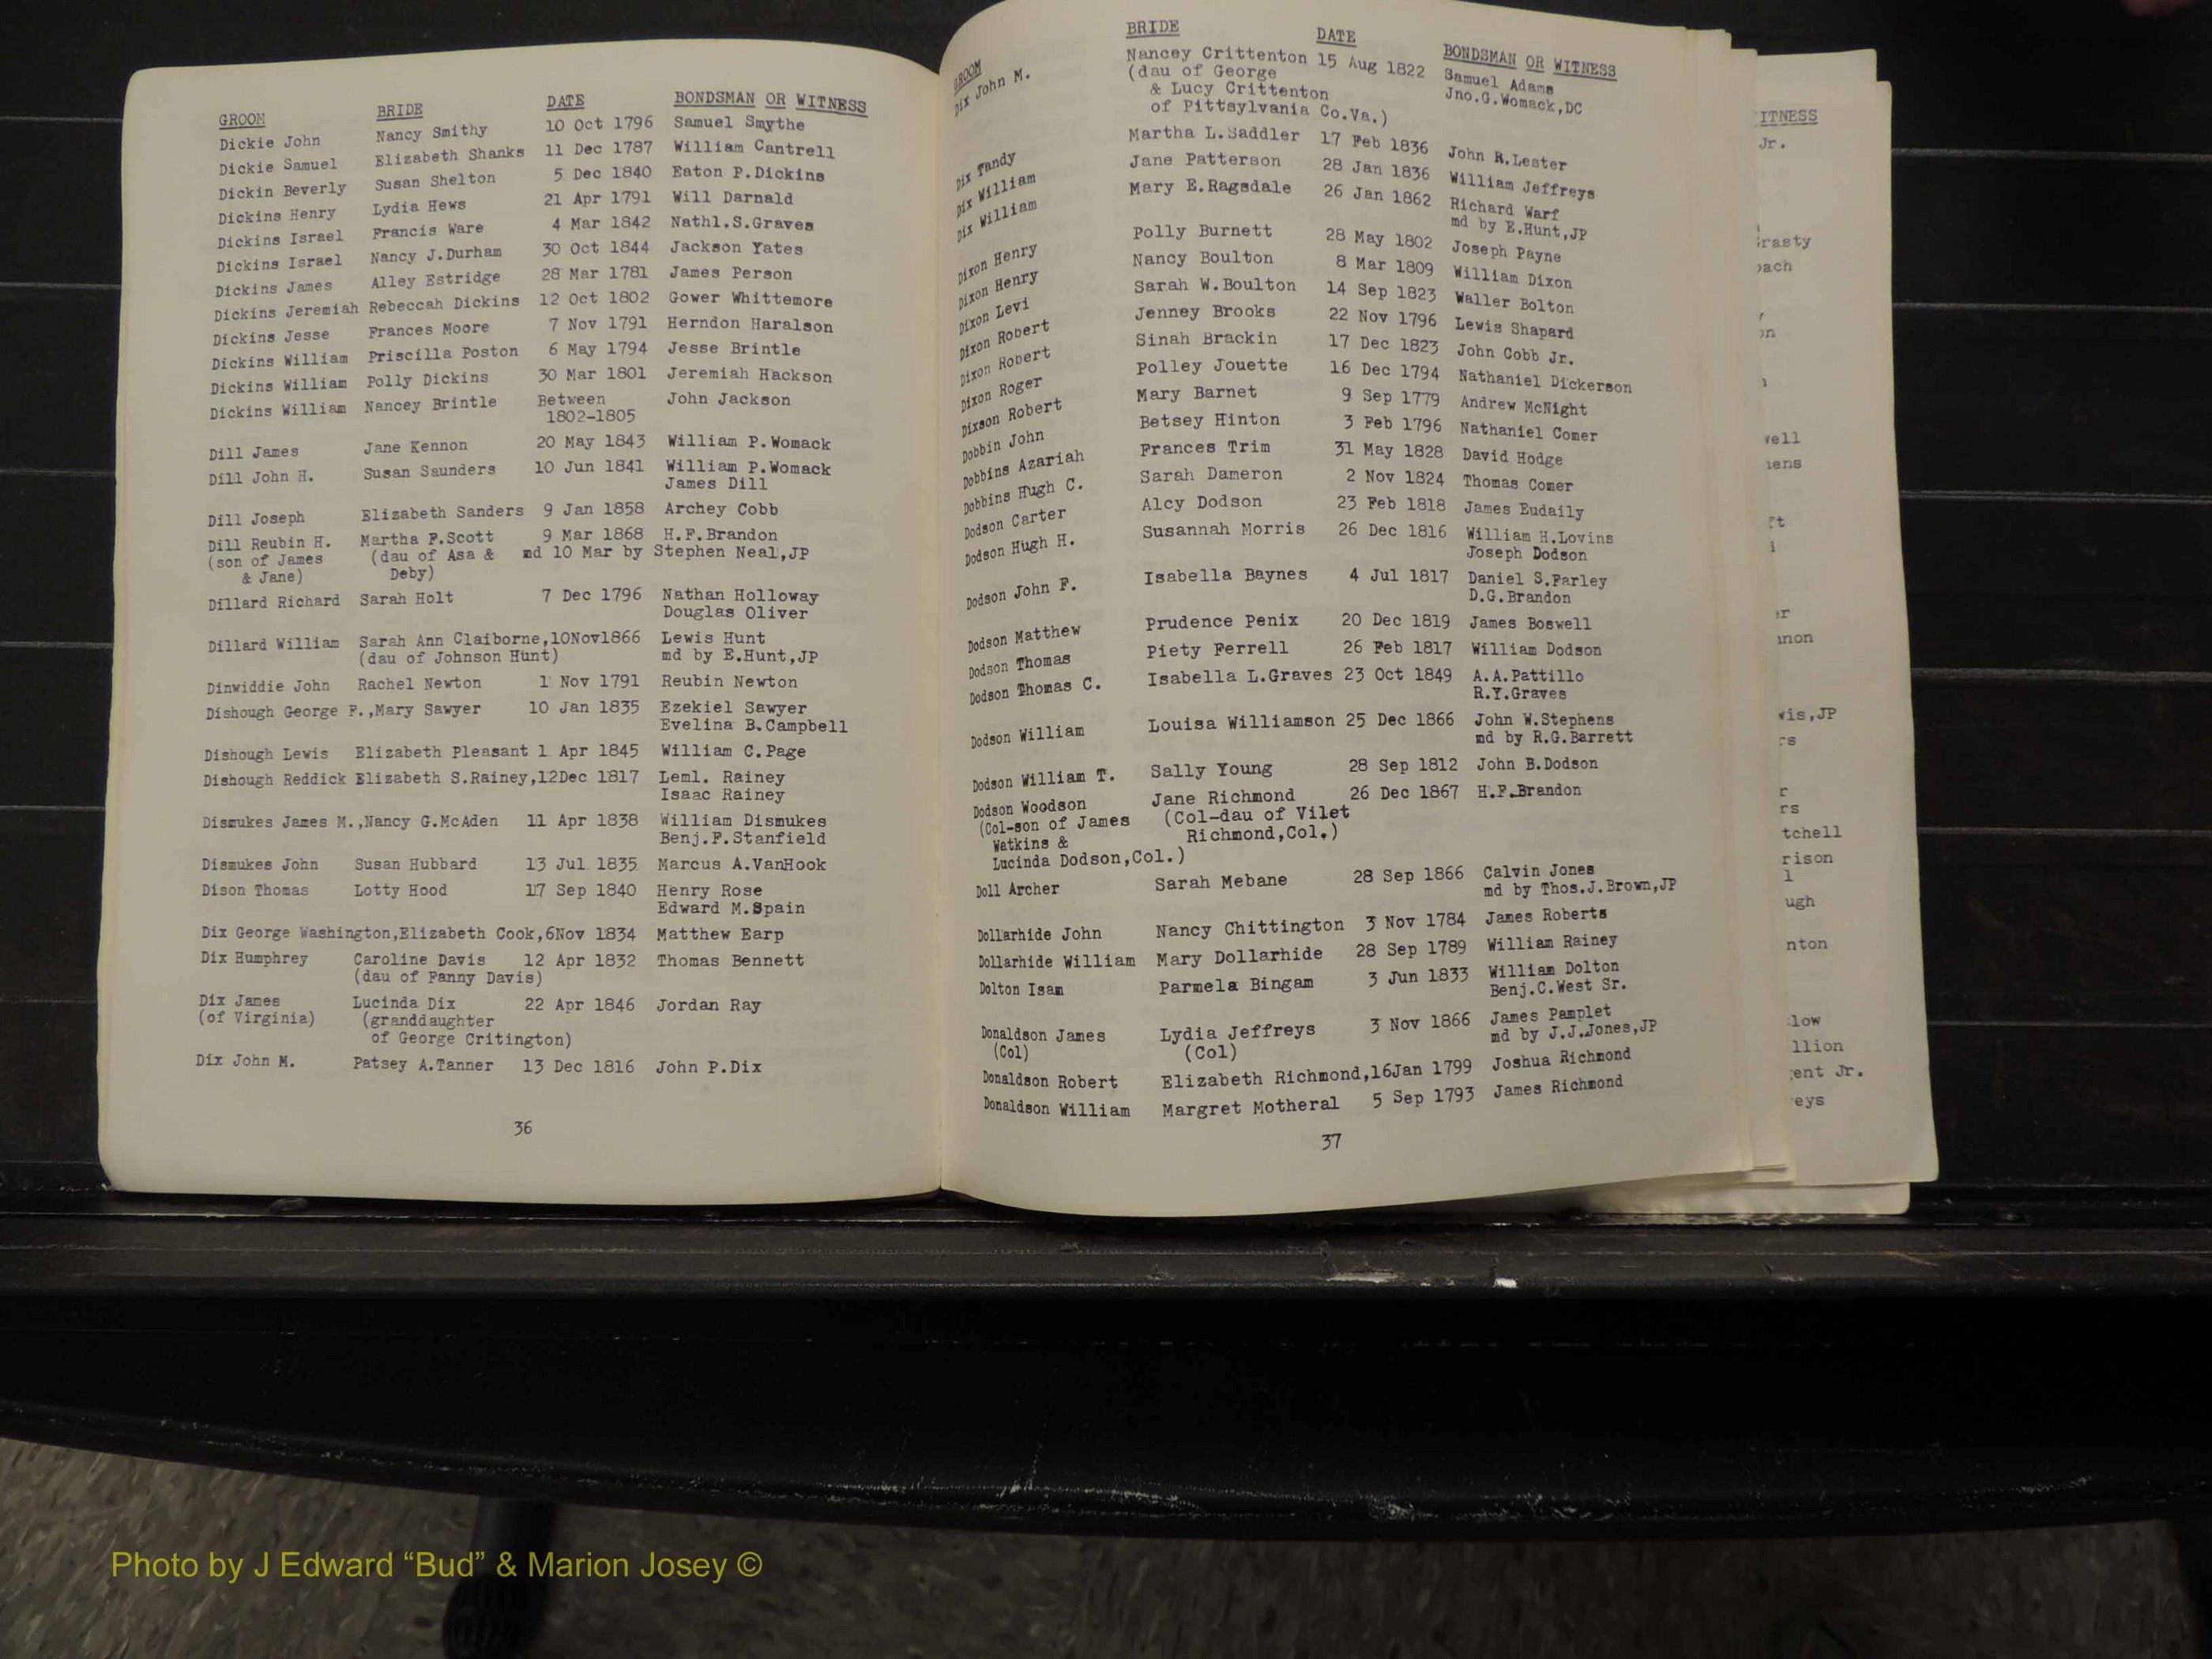 GROOM BRIDE DATE BONDSMAN OR WITNESS
Dickie John Nancy Smithy 10 Oct 1796 Samuel Smythe
Dickie Samuel Elizabeth Shanks 11 Dec 1787 William Cantrell
Dickin Beverly Susan Shelton 5 Dec 1840 Eaton P.Dickins
Dickins Henry Lydia Hews 21 Apr 1791 Will Darnald
Dickins Israel Francis Ware 4 Mar 1842 Nathl.S.Graves
Dickins Israel Nancy J.Durham 30 Oct 1844 Jackson Yates
Dickins James Alley Estridge 28 Mar 1781 James Person
Dickins Jeremiah Rebeccah Dickins 12 Oct 1802 Gower Whittemore
Dickins Jesse Frances Moore 7 Nov 1791 Herndon Haralson
Dickins William Priscilla Poston 6 May 1794 Jesse Brintle
Dickins William Polly Dickins 30 Mar 1801 Jeremiah Hackson
Dickins William Nancey Brintle Between John Jackson
1802-1805
Dill James Jane Kennon 20 May 1843 William P.Womack
Dill John H. Susan Saunders 10 Jun 1841 William P.Womack
James Dill
Dill Joseph Elizabeth Sanders 9 Jan 1858 Archey Cobb
Dill Reubin H. Martha F.Scott 9 Mar 1868 H.F.Brandon
(son of James (dau of Asa & md 10 Mar by Stephen Neal,JP
& Jane) Deby)
Dillard Richard Sarah Holt 7 Dec 1796 Nathan Holloway
Douglas Oliver
Dillard William Sarah Ann Claiborne,10Nov1866 Lewis Hunt
(dau of Johnson Hunt) md by E.Hunt,JP
Dinwiddie John Rachel Newton 1 Nov 1791 Reubin Newton
Dishough George F.,Mary Sawyer 10 Jan 1835 Ezekiel Sawyer
Evelina B.Campbell
Dishough Lewis Elizabeth Pleasant 1 Apr 1845 William C.Page
Dishough Reddick Elizabeth S.Rainey,12Dec 1817 Leml. Rainey
Isaac Rainey
Dismukes James M.,Nancy G.McAden 11 Apr 1838 William Dismukes
Benj.F.Stanfield
Dismukes John Susan Hubbard 13 Jul 1835 Marcus A.VanHook
Dison Thomas Lotty Hood 17 Sep 1840 Henry Rose
Edward M.Spain
Dix George Washington,Elizabeth Cook,6Nov 1834 Matthew Earp
Dix Humphrey Caroline Davis 12 Apr 1832 Thomas Bennett
(dau of Fanny Davis)
Dix James Lucinda Dix 22 Apr 1846 Jordan Ray
(of Virginia) (granddaughter
of George Critington)
Dix John M. Patsey A.Tanner 13 Dec 1816 John P.Dix
36
GROOM BRIDE DATE BONDSMAN OR WITNESS
Dix John M. Nancey Crittenton 15 Aug 1822 Samuel Adams
(dau of George Jno.G.Womack,DC
& Lucy Crittenton
of Pittsylvania Co.Va.)
Dix Tandy Martha L.Saddler 17 Feb 1836 John R.Lester
Dix William Jane Patterson 28 Jan 1836 William Jeffreys
Dix William Mary E.Ragsdale 26 Jan 1862 Richard Warf
md by E.Hunt,JP
Dixon Henry Polly Burnett 28 May 1802 Joseph Payne
Dixon Henry Nancy Boulton 8 Mar 1809 William Dixon
Dixon Levi Sarah W.Boulton 14 Sep 1823 Waller Bolton
Dixon Robert Jenney Brooks 22 Nov 1796 Lewis Shapard
Dixon Robert Sinah Brackin 17 Dec 1823 John Cobb Jr.
Dixon Roger Polley Jouette 16 Dec 1794 Nathaniel Dickerson
Dixson Robert Mary Barnet 9 Sep 1779 Andrew McNight
Dobbin John Betsey Hinton 3 Feb 1796 Nathaniel Comer
Dobbins Azariah Frances Trim 31 May 1828 David Hodge
Dobbins Hugh C. Sarah Dameron 2 Nov 1824 Thomas Comer
Dodson Carter Alcy Dodson 23 Feb 1818 James Eudaily
Dodson Hugh H. Susannah Morris 26 Dec 1816 William H.Lovins
Joseph Dodson
Dodson John F. Isabella Baynes 4 Jul 1817 Daniel S.Farley
D.G.Brandon
Dodson Matthew Prudence Penix 20 Dec 1819 James Boswell
Dodson Thomas Piety Ferrell 26 Feb 1817 William Dodson
Dodson Thomas C. Isabella L.Graves 23 Oct 1849 A.A.Pattillo
R.Y.Graves
Dodson William Louisa Williamson 25 Dec 1866 John W.Stephens
md by R.G.Barrett
Dodson William T. Sally Young 28 Sep 1812 John B.Dodson
Dodson Woodson Jane Richmond 26 Dec 1867 H.F.Brandon
(Col-son of James (Col-dau of Vilet
Watkins & Richmond,Col.)
Lucinda Dodson,Col.)
Doll Archer Sarah Mebane 28 Sep 1866 Calvin Jones
md by Thos.J.Brown,JP
Dollarhide John Nancy Chittington 3 Nov 1784 James Roberts
Dollarhide William Mary Dollarhide 28 Sep 1789 William Rainey
Dolton Isam Parmela Bingam 3 Jun 1833 William Dolton
Benj.C.West Sr.
Donaldson James Lydia Jeffreys 3 Nov 1866 James Pamplet
(Col) (Col) md by J.J.Jones,JP
Donaldson Robert Elizabeth Richmond,16Jan 1799 Joshua Richmond
Donaldson William Margret Motheral 5 Sep 1793 James Richmond
37
Photo by J Edward “Bud” & Marion Josey ©